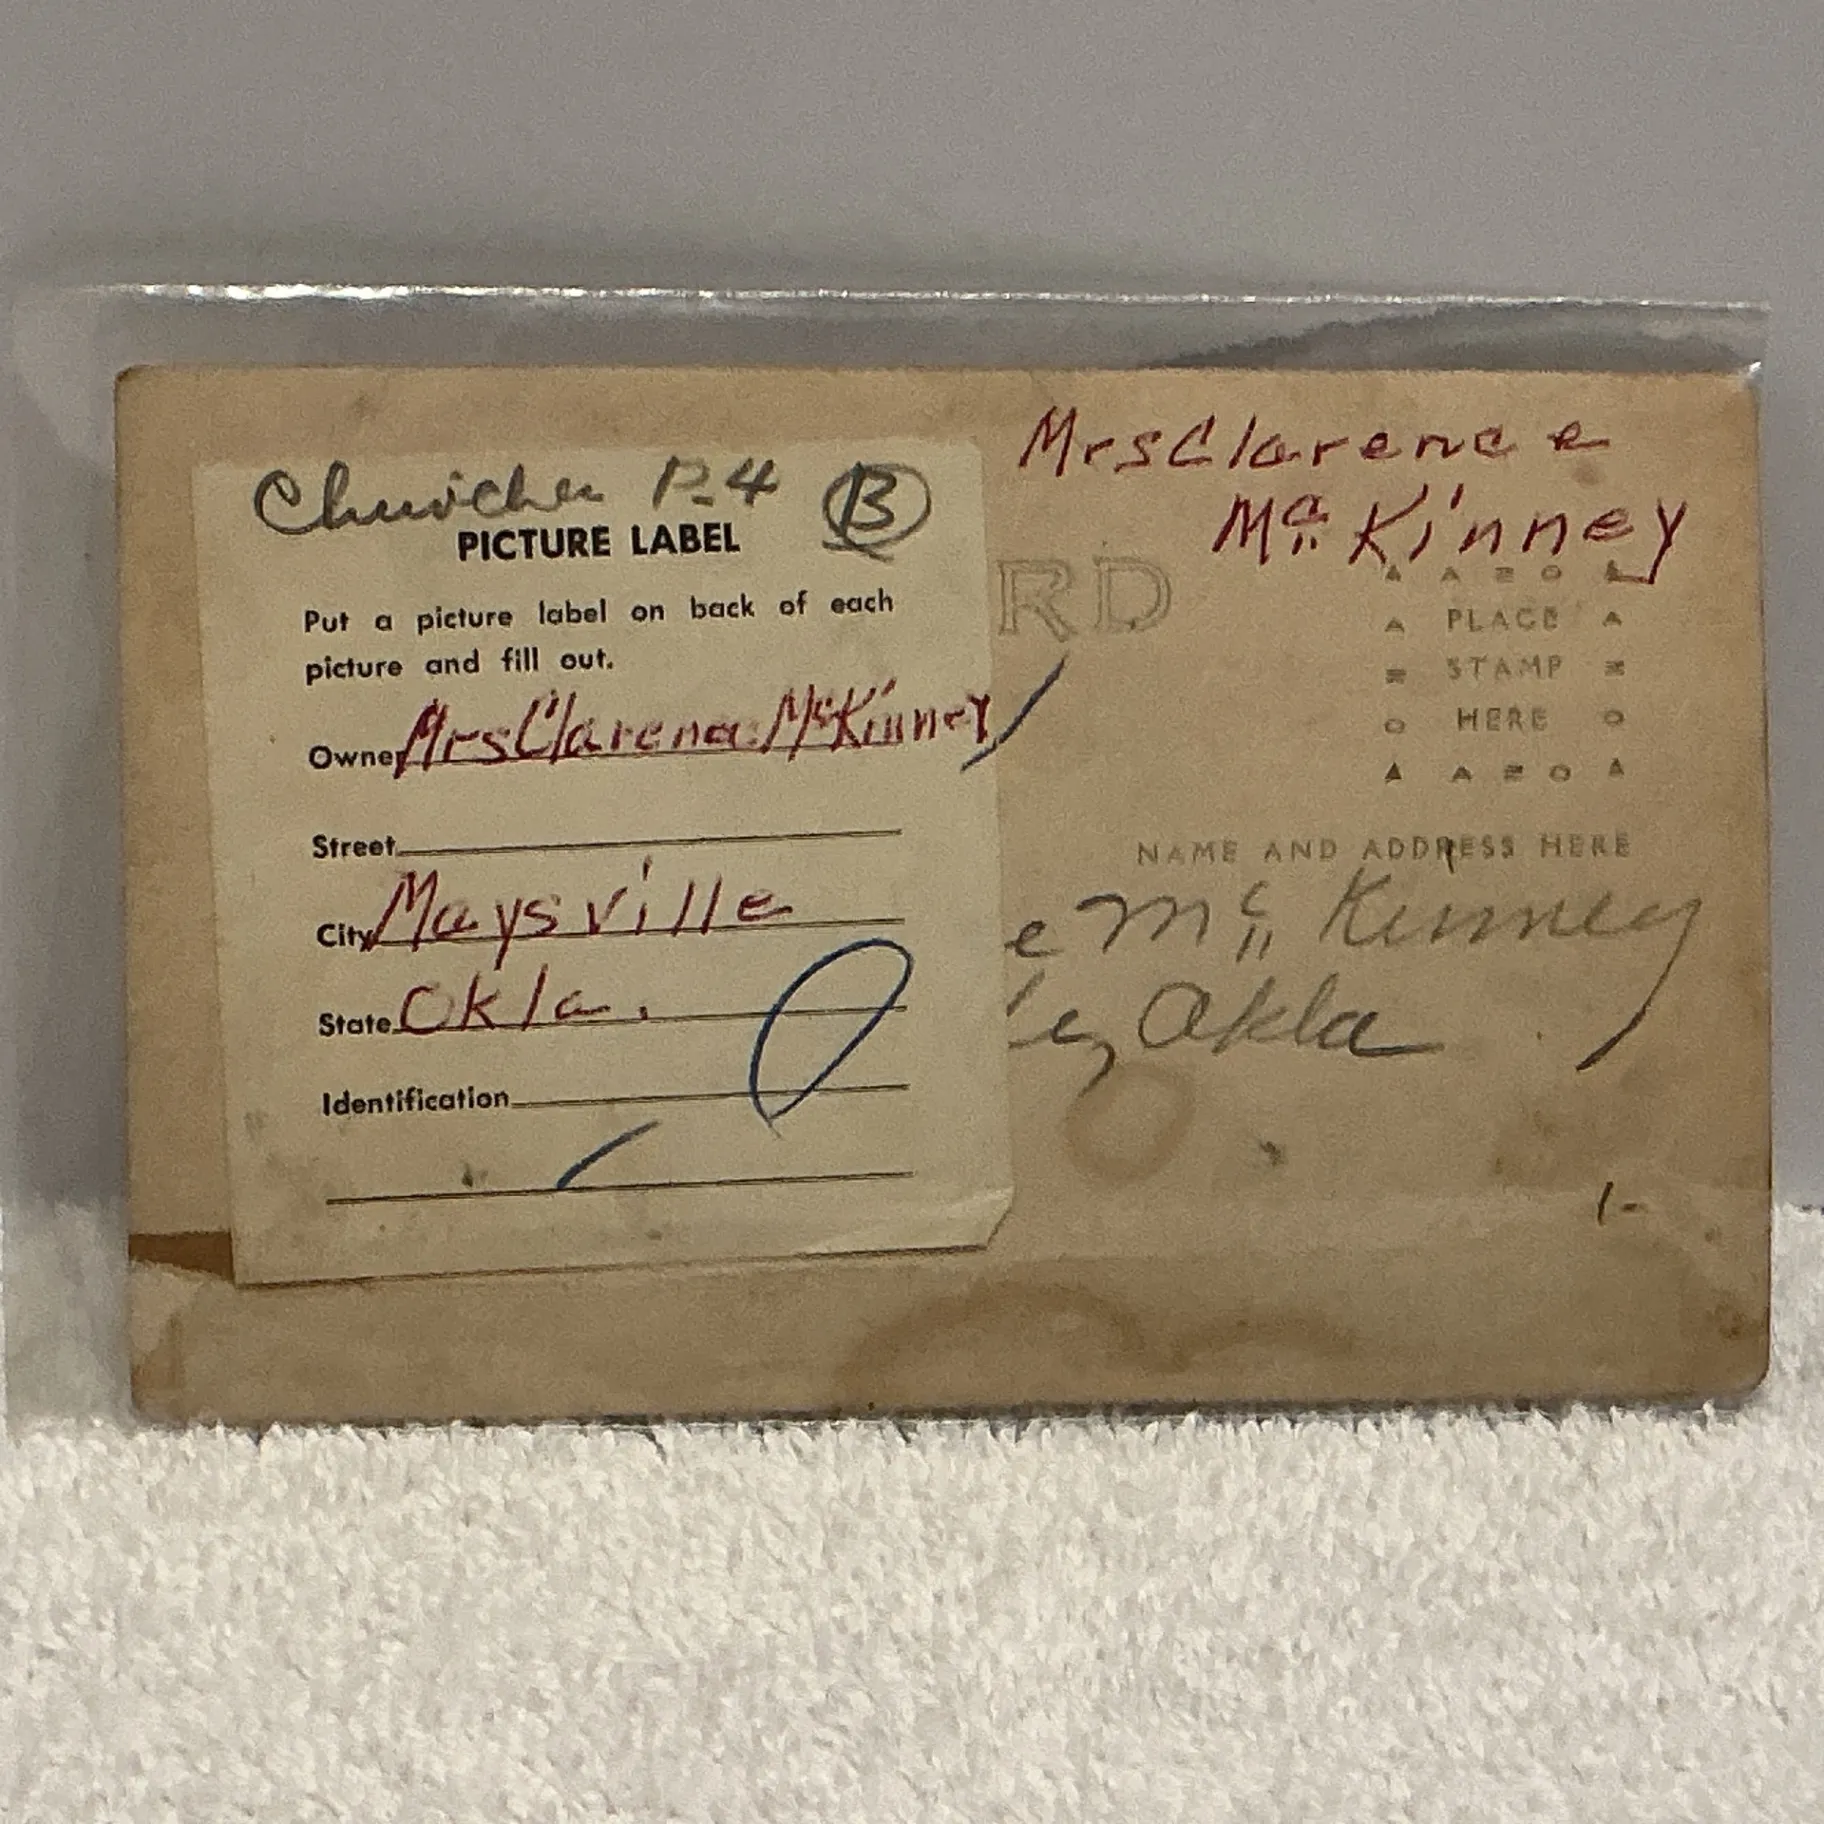 Churches P.4 B
PICTURE LABEL
Put a picture label on back of each
picture and fill out.
Owner Mrs Clarence McKinney
Street
City Maysville
State Okla.
Identification
Mrs Clarence
Mc Kinney
RD
AZO
PLACE
STAMP
HERE
AZO
NAME AND ADDRESS HERE
e Mc Kinney
Okla
1-